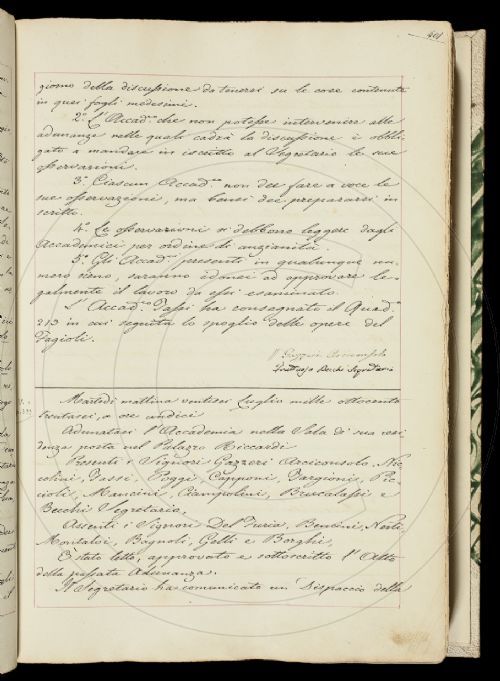 401
giorno della discussione da tenersi su le cose contenute
in quei fogli medesimi.
2.° L'Accad.co che non potesse intervenire alle
adunanze nelle quali cadrà la discussione è obbli-
gato a mandare in iscritto al Segretario le sue
osservazioni.
3.° Ciascun Accad.co non dee fare a voce le
sue osservazioni, ma bensì dee prepararsi in
scritto.
4.° Le osservazioni si debbono leggere dagli
Accademici per ordine di anzianità.
5.° Gli Accad.ci presenti in qualunque nu-
mero sieno, saranno idonei ad approvare le-
galmente il lavoro da essi esaminato.
L'Accad.co Tassi ha consegnato il Quad.o
213 in cui seguita lo spoglio delle opere del
Fagioli.
Gazzeri Arciconsolo
Fruttuoso Becchi Segretario
Martedì mattina ventisei Luglio mille ottocento
trentasei, a ore undici
Adunatasi l'Accademia nella Sala di sua resi-
denza posta nel Palazzo Riccardi
Presenti i Signori Gazzeri Arciconsolo, Nic-
colini, Tassi, Poggi, Capponi, Targioni, Pic-
cioli, Mancini, Ciampolini, Bruscalassi e
Becchi Segretario.
Assenti i Signori Del Furia, Bencini, Nesti
Montalvi, Bagnoli, Gelli e Borghi,
È stato letto, approvato e sottoscritto l'Atto
della passata Adunanza.
Il Segretario ha comunicato un Dispaccio della